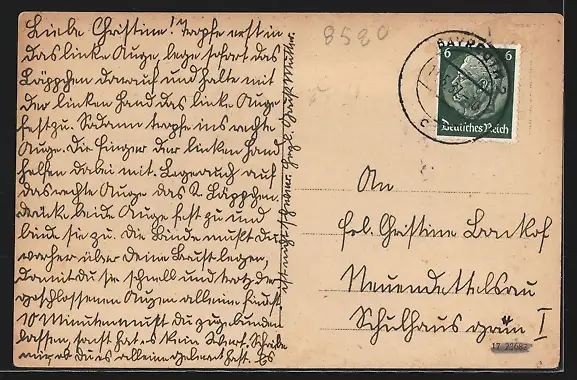 Liebe Christine! Tropfe erst in
das linke Auge, lege sofort das
Läppchen darauf und halte mit
der linken Hand das linke Auge
fest zu. Sodann tropfe ins rechte
Auge. Die Finger der linken Hand
helfen dabei mit. Lege auch auf
das rechte Auge das 2. Läppchen,
drücke beide Augen fest zu und
binde sie zu. Die Binde mußt du
vorher über deine Brust legen,
damit du sie schnell und trotz der
geschlossenen Augen alleine findest.
10 Minuten mußt du zugebunden
lassen, sonst hat es kein Wert. Schreibe
mir, ob du es alleine gekonnt hast. Es
8580
BAYREUTH 2
6 6
Deutsches Reich
An
Frl. Christine
Neuendettelsau
Schulhaus grün I
17 23682